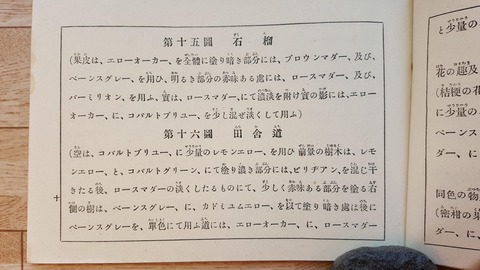 第十五圖 石榴
(果皮は、エローオーカー、を全體に塗り暗き部分には、ブロウンマダー、及び、
ペーンスグレー、を用ひ、明るき部分の赤味ある處には、ロースマダー、及び、
バーミリオン、を用ふ、實は、ロースマダー、にて濃淡を附け實の影には、エロー
オーカー、に、コバルトブリユー、を少し混ぜ淡くして用ふ)
第十六圖 田舎道
(空は、コバルトブリユー、に少量のレモンエロー、を用ひ前景の樹木は、レモ
ンエロー、と、コバルトグリーン、にて塗り濃き部分には、ビリヂアン、を混じ干
きたる後、ロースマダーの淡くしたるものにて、少しく赤味ある部分を塗る右
側の樹は、ペーンスグレー、に、カドミユムエロー、を以て塗り暗き處は後に
ペーンスグレーを、單色にて用ふ道には、エローオーカー、に、ロースマダー
十
と少量の
花の趣及
(桔梗の花
に少量の
ペーンス
同色の物
(密柑の果